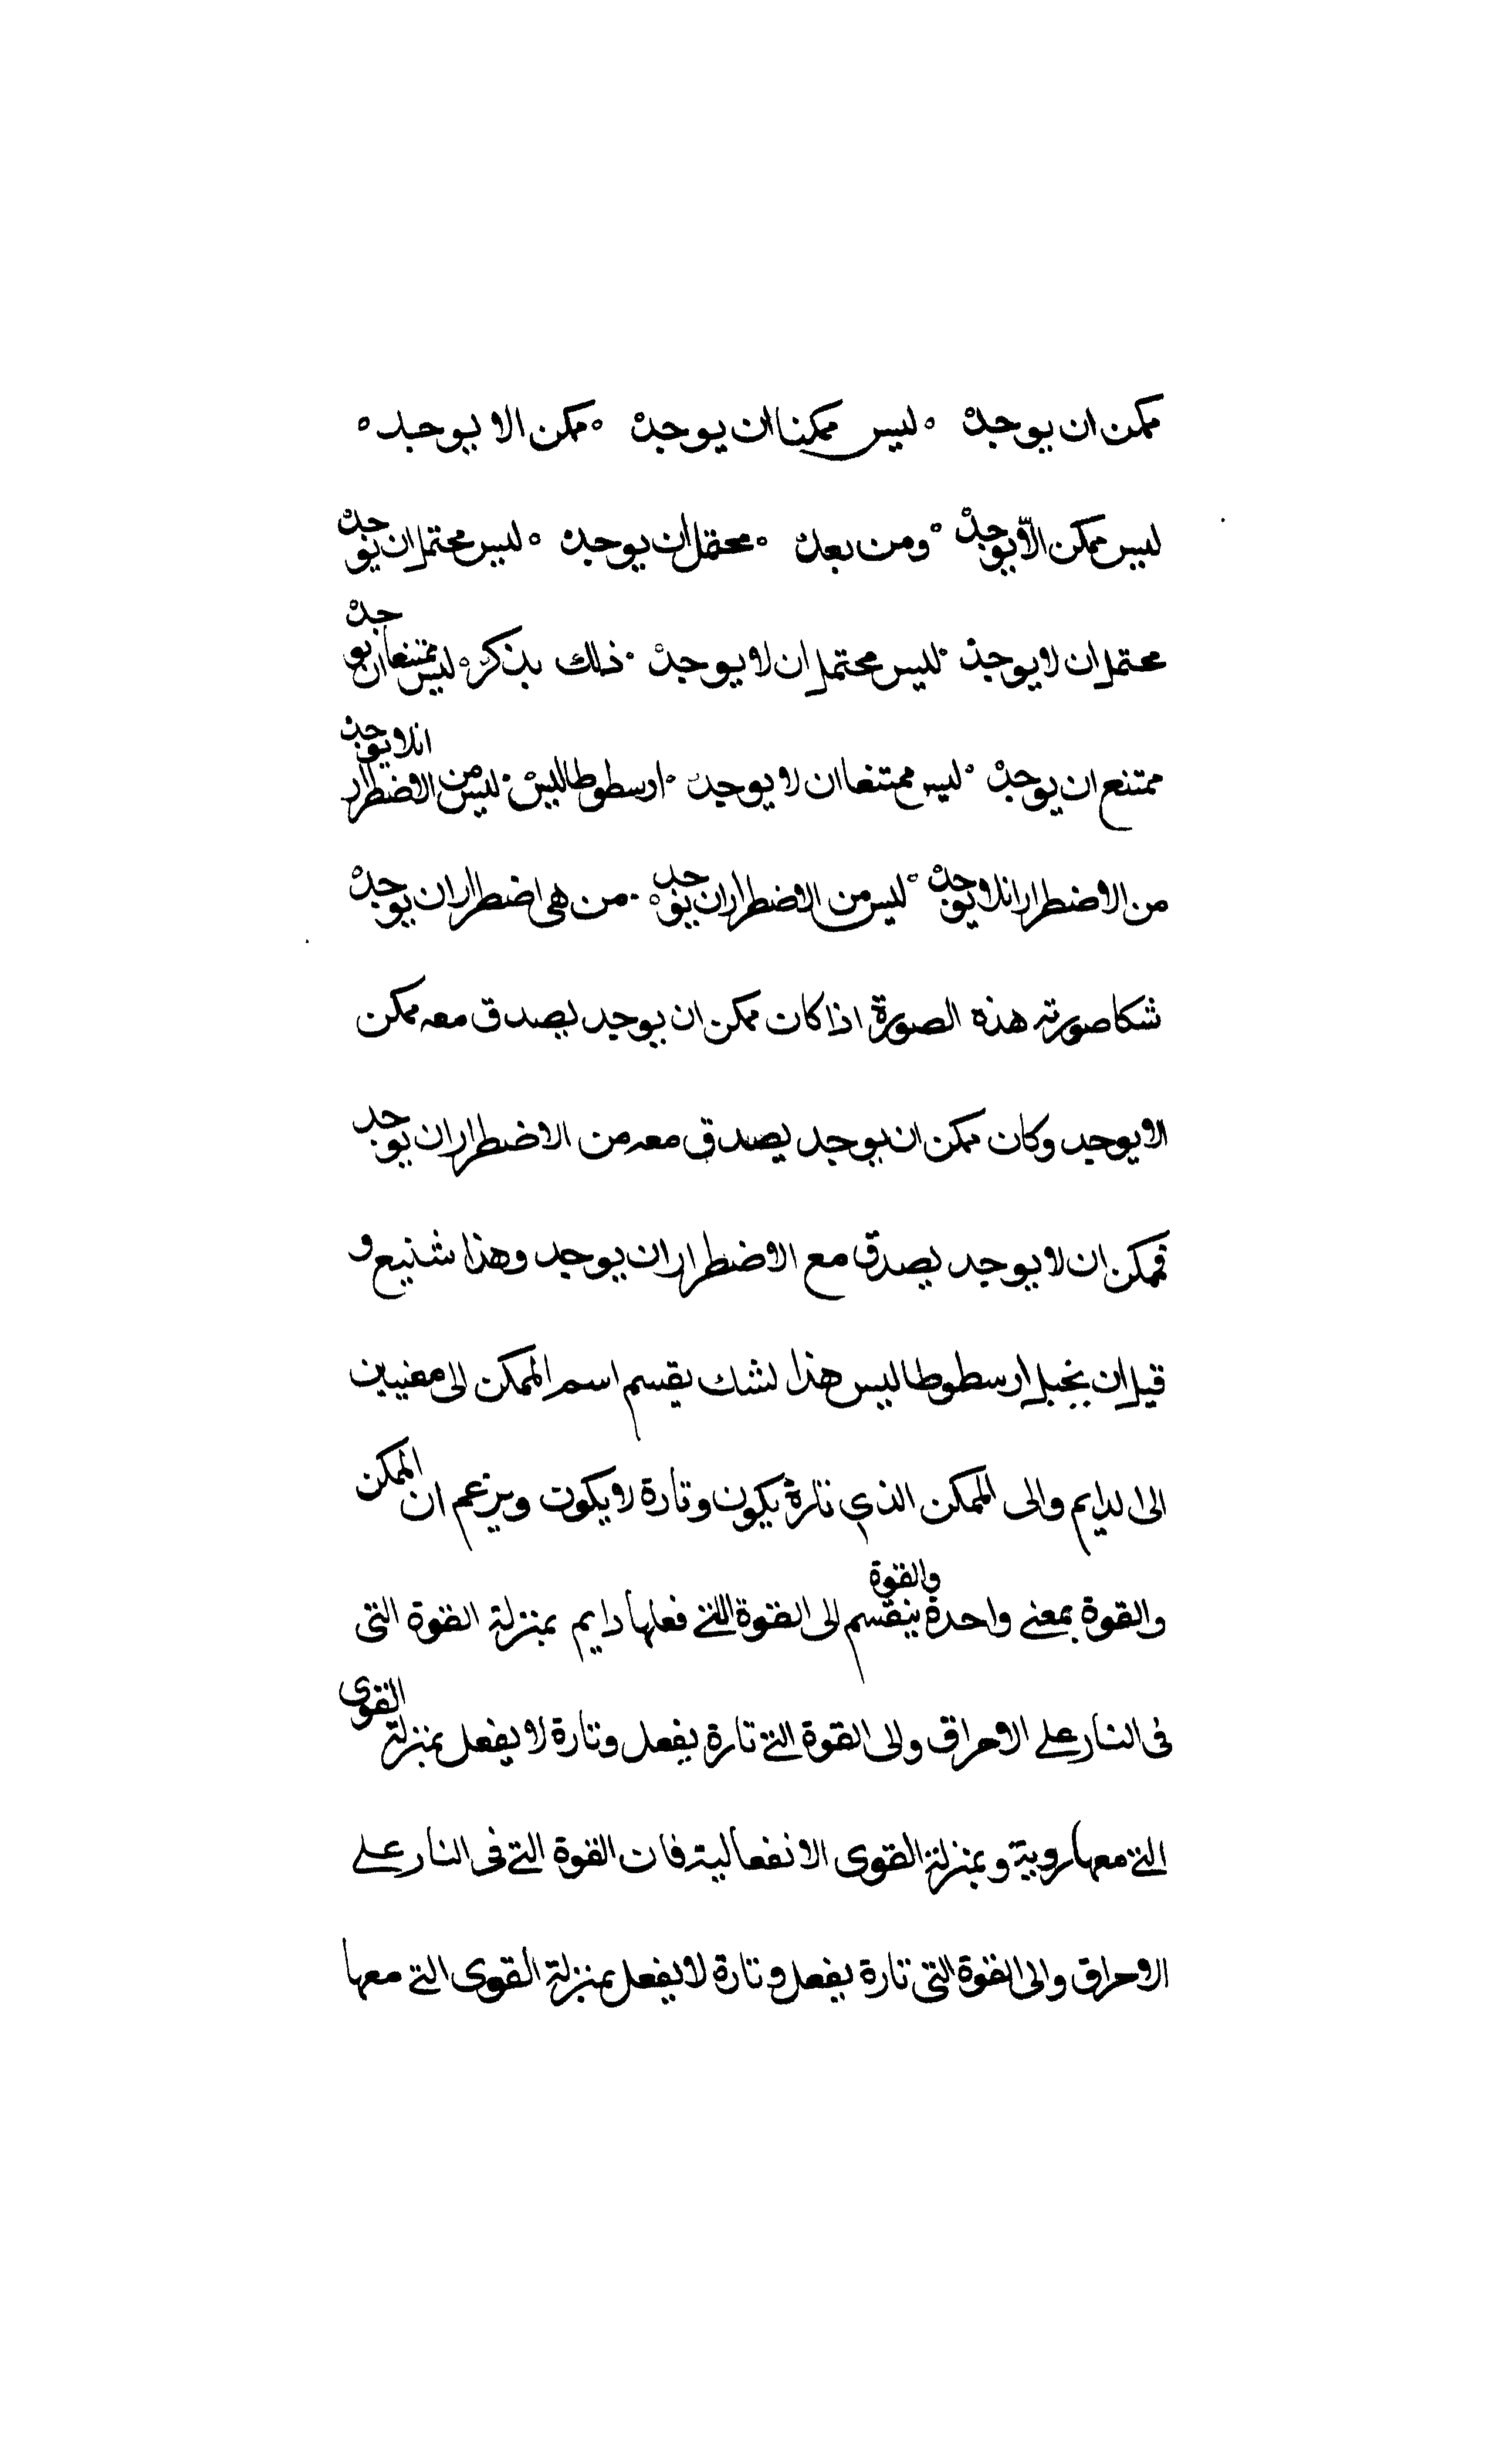 ممكن ان يوجد ه ليس ممكنا ان يوجد ه ممكن الا يوجد ه
ليس ممكن الّا يوجد ه ومن بعد ه محتمل ان يوجد ه ليس محتمل ان يوجد
محتمل ان لا يوجد ه ليس محتمل ان لا يوجد ه ذلك بذكر ه ليس ممتنعا ان يوجد
ممتنع ان يوجد ه ليس ممتنعا ان لا يوجد ه ارسطوطاليس ه ليس من الاضطرار انلا يوجد
من الاضطرار انلا يوجد ه ليس من الاضطرار ان يوجد ه من هى اضطرار ان يوجد
شكا صورته هذه الصورة اذا كان ممكن ان يوجد يصدق معه ممكن
الا يوجد وكان ممكن ان يوجد يصدق معه من الاضطرار ان يوجد
فممكن ان لا يوجد يصدق مع الاضطرار ان يوجد وهذا شنيع و
قيل ان بخبل ارسطوطاليس هذا لشك يقسم اسم الممكن الى معنيين
الى الدايم والى الممكن الذي تارة يكون وتارة لا يكون ويزعم ان الممكن
والقوة بمعنى واحدة والقوة ينقسم الى القوة اللتى فعلها دايم بمنزلة القوة التى
فى النار على الاحراق والى القوة التى تارة يفعل وتارة لا يفعل بمنزلة القوى
التى معها روية وبمنزلة القوى الانفعالية فان القوة التى فى النار على
الاحراق والى القوة التى تارة يفعل وتارة لا يفعل بمنزلة القوى التى معها